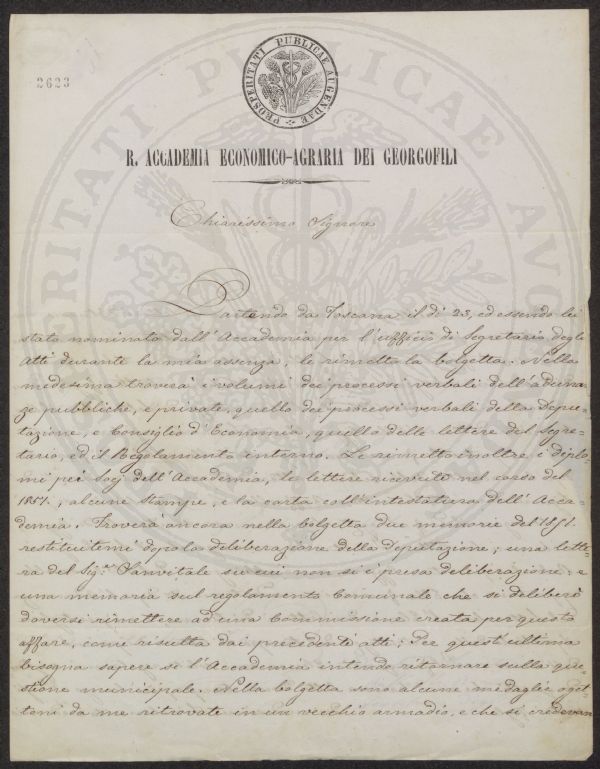 2623
PROSPERITATI PUBLICAE AUGENDAE
R. ACCADEMIA ECONOMICO-AGRARIA DEI GEORGOFILI
Chiarissimo Signore
Partendo da Toscana il dì 23, ed essendo lei
stato nominato dall'Accademia per l'ufficio di Segretario degli
Atti durante la mia assenza, le rimetto la bolgetta. Nella
medesima troverà i volumi dei processi verbali dell'adunan-
ze pubbliche, e private, quello dei processi verbali della Depu-
tazione, e Consiglio d'Economia, quello delle lettere del Segre-
tario, ed il Regolamento interno. Le rimetto inoltre i diplo-
mi pei Socj dell'Accademia, le lettere ricevute nel corso del
1851., alcune stampe, e la carta coll'intestatura dell'Acca-
demia. Troverà ancora nella bolgetta due memorie del 1851.
restituitemi dopo la deliberazione della Deputazione; una lette-
ra del Sig.r Sanvitale su cui non si è presa deliberazione: e
una memoria sul regolamento Comunale che si deliberò
doversi rimettere ad una Commissione creata per questo
affare, come risulta dai precedenti atti; Per quest'ultima
bisogna sapere se l'Accademia intende ritornare sulla que-
stione municipale. Nella bolgetta sono alcune medaglie e get-
toni da me ritrovate in un vecchio armadio, e che si credevan